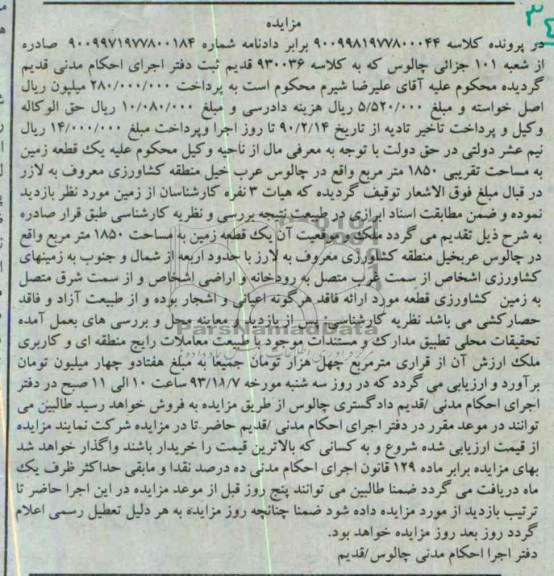 ۳٤
مزایده
در پرونده کلاسه ۹۰۰۹۹۸۱۹۷۷۸۰۰۰۴۴ برابر دادنامه شماره ۹۰۰۹۹۷۱۹۷۷۸۰۰۱۸۴ صادره
از شعبه ۱۰۱ جزائی چالوس که به کلاسه ۹۳۰۰۳۶ قدیم ثبت دفتر اجرای احکام مدنی قدیم
گردیده محکوم علیه آقای علیرضا شیرم محکوم است به پرداخت ۲۸۰/۰۰۰/۰۰۰ میلیون ریال
اصل خواسته و مبلغ ۵/۵۲۰/۰۰۰ ریال هزینه دادرسی و مبلغ ۱۰/۰۸۰/۰۰۰ ریال حق الوکاله
وکیل و پرداخت تاخیر تادیه از تاریخ ۹۰/۲/۱۴ تا روز اجرا وپرداخت مبلغ ۱۴/۰۰۰/۰۰۰ ریال
نیم عشر دولتی در حق دولت با توجه به معرفی مال از ناحیه وکیل محکوم علیه یک قطعه زمین
به مساحت تقریبی ۱۸۵۰ متر مربع واقع در چالوس عرب خیل منطقه کشاورزی معروف به لارز
در قبال مبلغ فوق الاشعار توقیف گردیده که هیات ۳ نفره کارشناسان از زمین مورد نظر بازدید
نموده و ضمن مطابقت اسناد ابرازی در طبیعت نتیجه بررسی و نظریه کارشناسی طبق قرار صادره
به شرح ذیل تقدیم می گردد ملک موقعیت آن یک قطعه زمین به مساحت ۱۸۵۰ متر مربع واقع
در چالوس عربخیل منطقه کشاورزی معروف به لارز با حدود اربعه از شمال و جنوب به زمینهای
کشاورزی اشخاص از سمت غرب متصل به رودخانه و اراضی اشخاص و از سمت شرق متصل
به زمین کشاورزی قطعه مورد ارائه فاقد هرگونه اعیانی و اشجار بوده و از طبیعت آزاد و فاقد
حصارکشی می باشد نظریه کارشناسی: پس از بازدید و معاینه محل و بررسی های بعمل آمده
تحقیقات محلی تطبیق مدارک و مستندات موجود با طبیعت معاملات رایج منطقه ای و کاربری
ملک ارزش آن از قراری مترمربع چهل هزار تومان جمیعا به مبلغ هفتادو چهار میلیون تومان
برآورد و ارزیابی می گردد که در روز سه شنبه مورخه ۹۳/۱۱/۷ ساعت ۱۰ الی ۱۱ صبح در دفتر
اجرای احکام مدنی /قدیم دادگستری چالوس از طریق مزایده به فروش خواهد رسید طالبین می
توانند در موعد مقرر در دفتر اجرای احکام مدنی /قدیم حاضر تا در مزایده شرکت نمایند مزایده
از قیمت ارزیابی شده شروع و به کسانی که بالاترین قیمت را خریدار باشند واگذار خواهد شد
بهای مزایده برابر ماده ۱۲۹ قانون اجرای احکام مدنی ده درصد نقدا و مابقی حداکثر ظرف یک
ماه دریافت می گردد ضمنا طالبین می توانند پنج روز قبل از موعد مزایده در این اجرا حاضر تا
ترتیب بازدید از مورد مزایده داده شود ضمنا چنانچه روز مزایده به هر دلیل تعطیل رسمی اعلام
گردد روز بعد روز مزایده خواهد بود.
دفتر اجرا احکام مدنی چالوس/قدیم
ParsNamadData